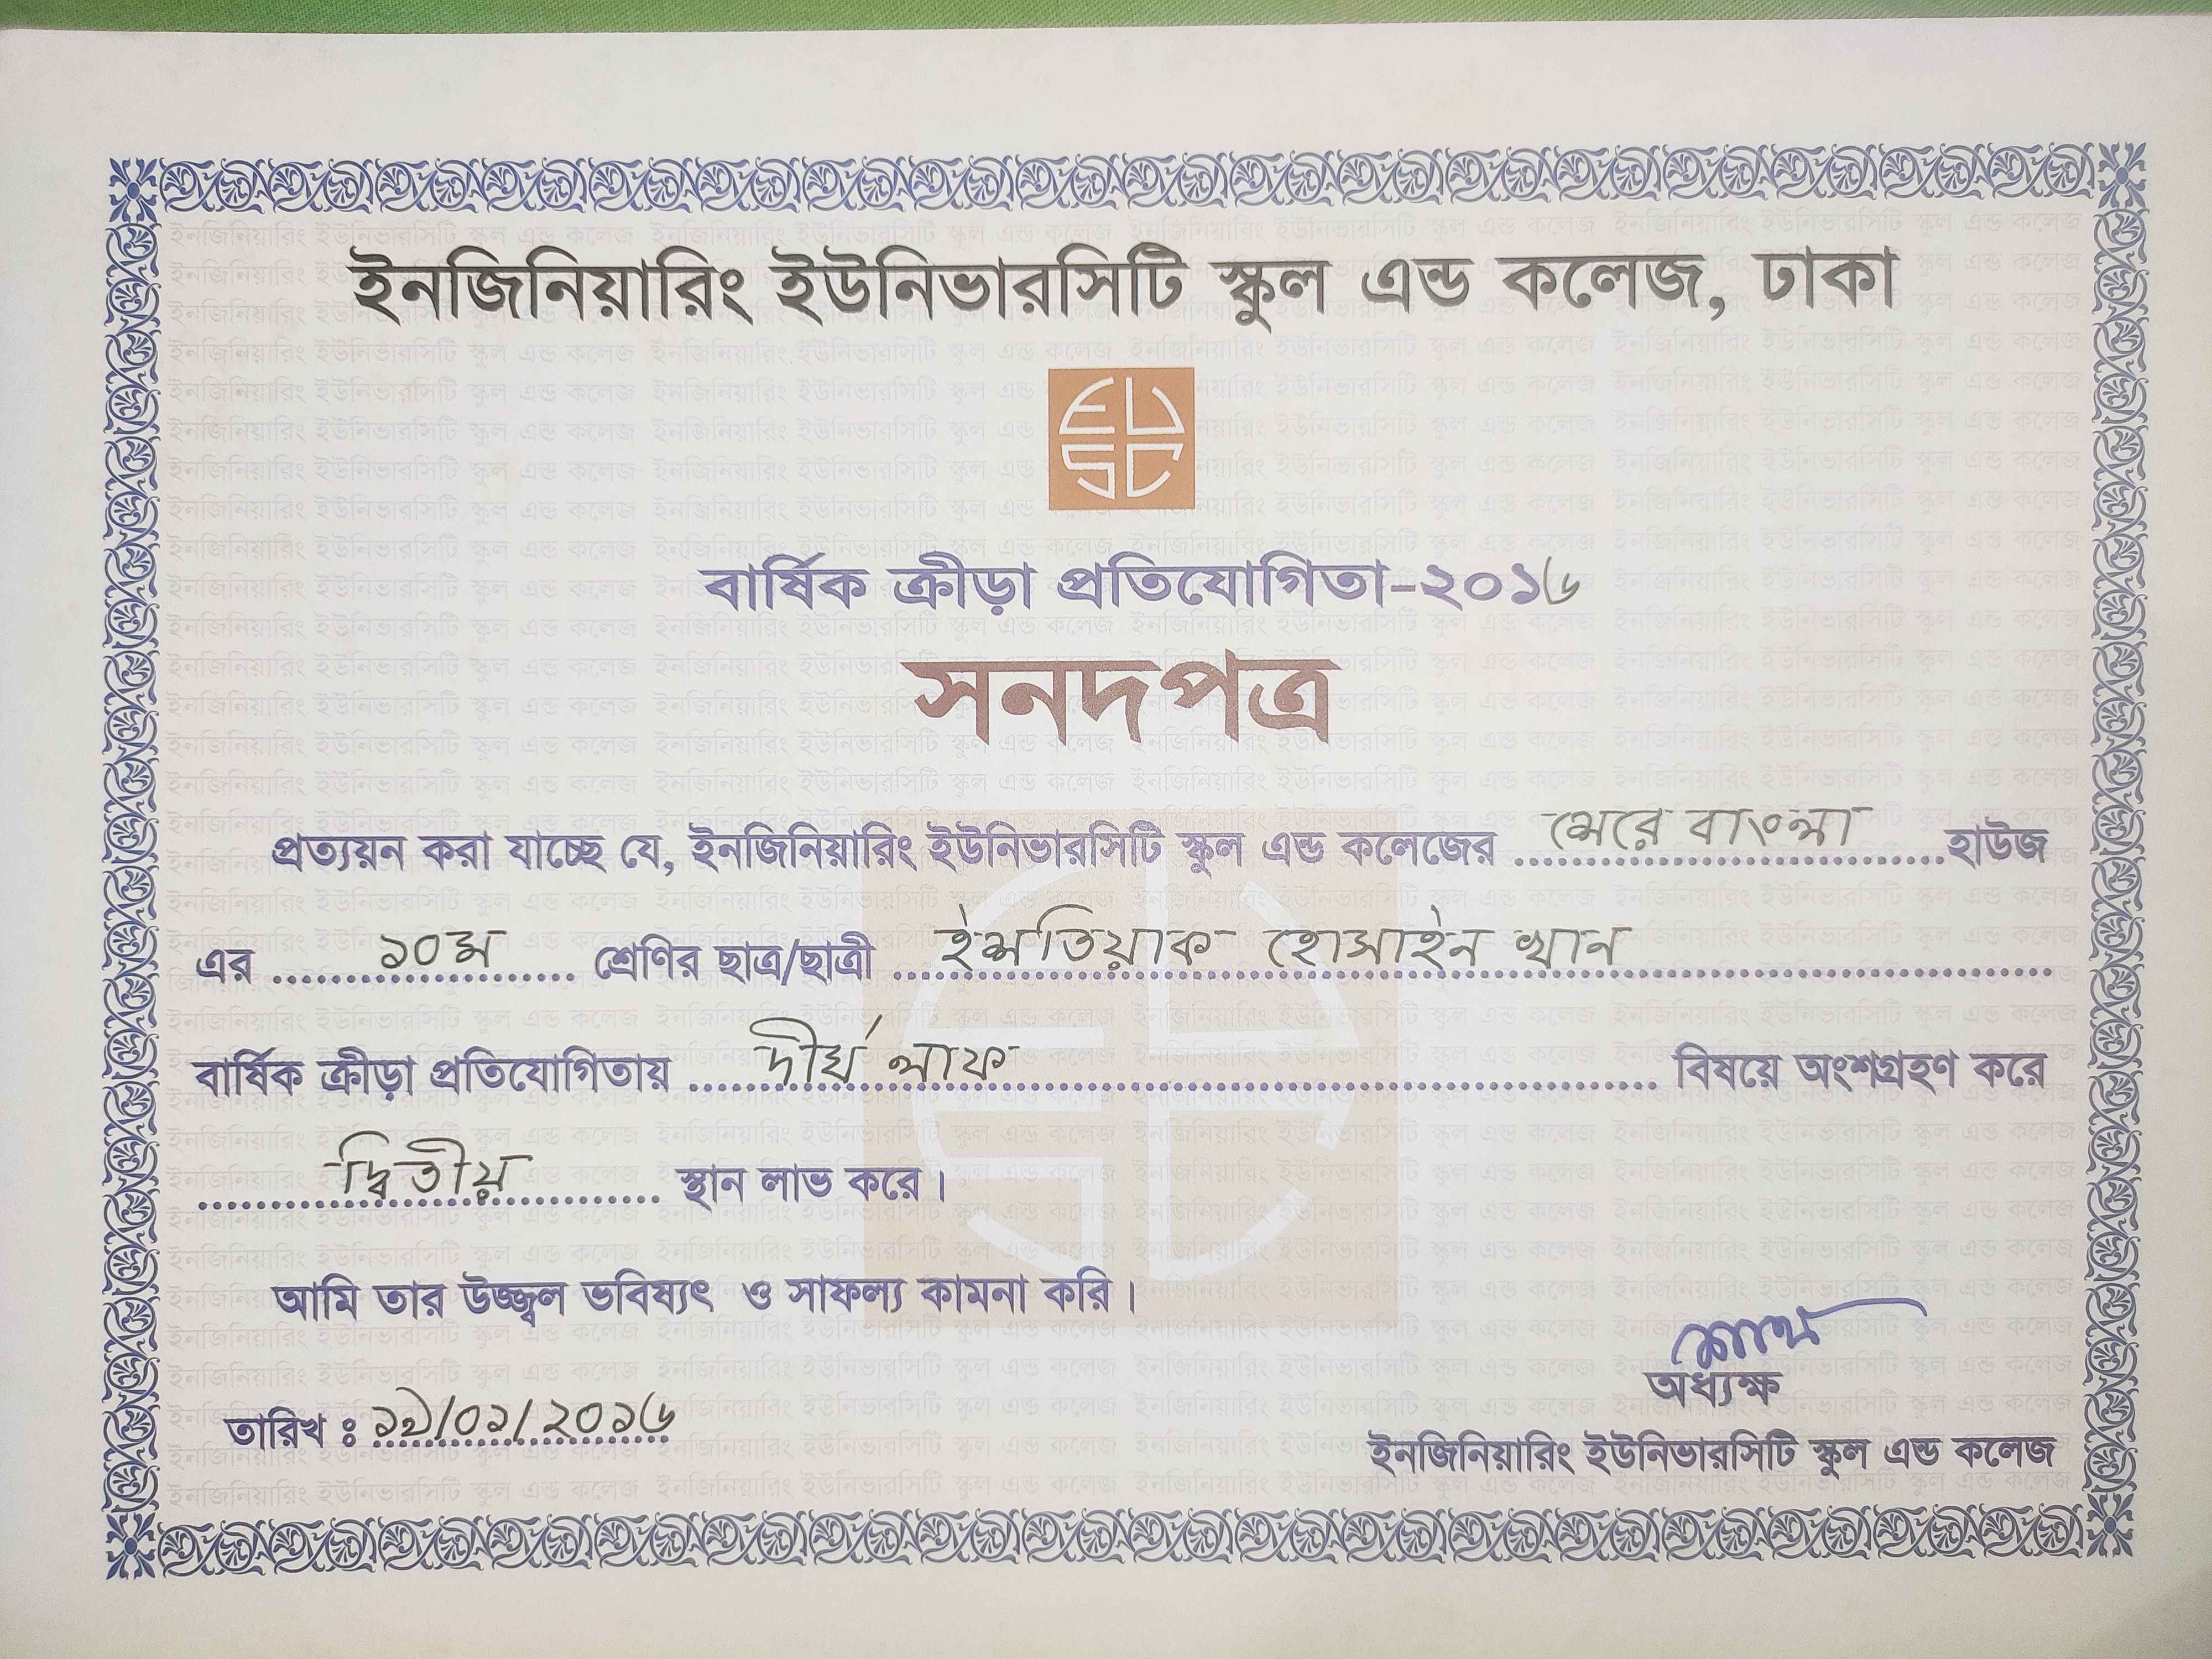 ইনজিনিয়ারিং ইউনিভারসিটি স্কুল এন্ড কলেজ, ঢাকা
EUSC
বার্ষিক ক্রীড়া প্রতিযোগিতা-২০১৬
সনদপত্র
প্রত্যয়ন করা যাচ্ছে যে, ইনজিনিয়ারিং ইউনিভারসিটি স্কুল এন্ড কলেজের শেরে বাংলা হাউজ
এর ১০ম শ্রেণির ছাত্র/ছাত্রী ইমতিয়াক হোসাইন খান
বার্ষিক ক্রীড়া প্রতিযোগিতায় দীর্ঘ লাফ বিষয়ে অংশগ্রহণ করে
দ্বিতীয় স্থান লাভ করে।
আমি তার উজ্জ্বল ভবিষ্যৎ ও সাফল্য কামনা করি।
অধ্যক্ষ
তারিখ ঃ ১৯/০১/২০১৬
ইনজিনিয়ারিং ইউনিভারসিটি স্কুল এন্ড কলেজ